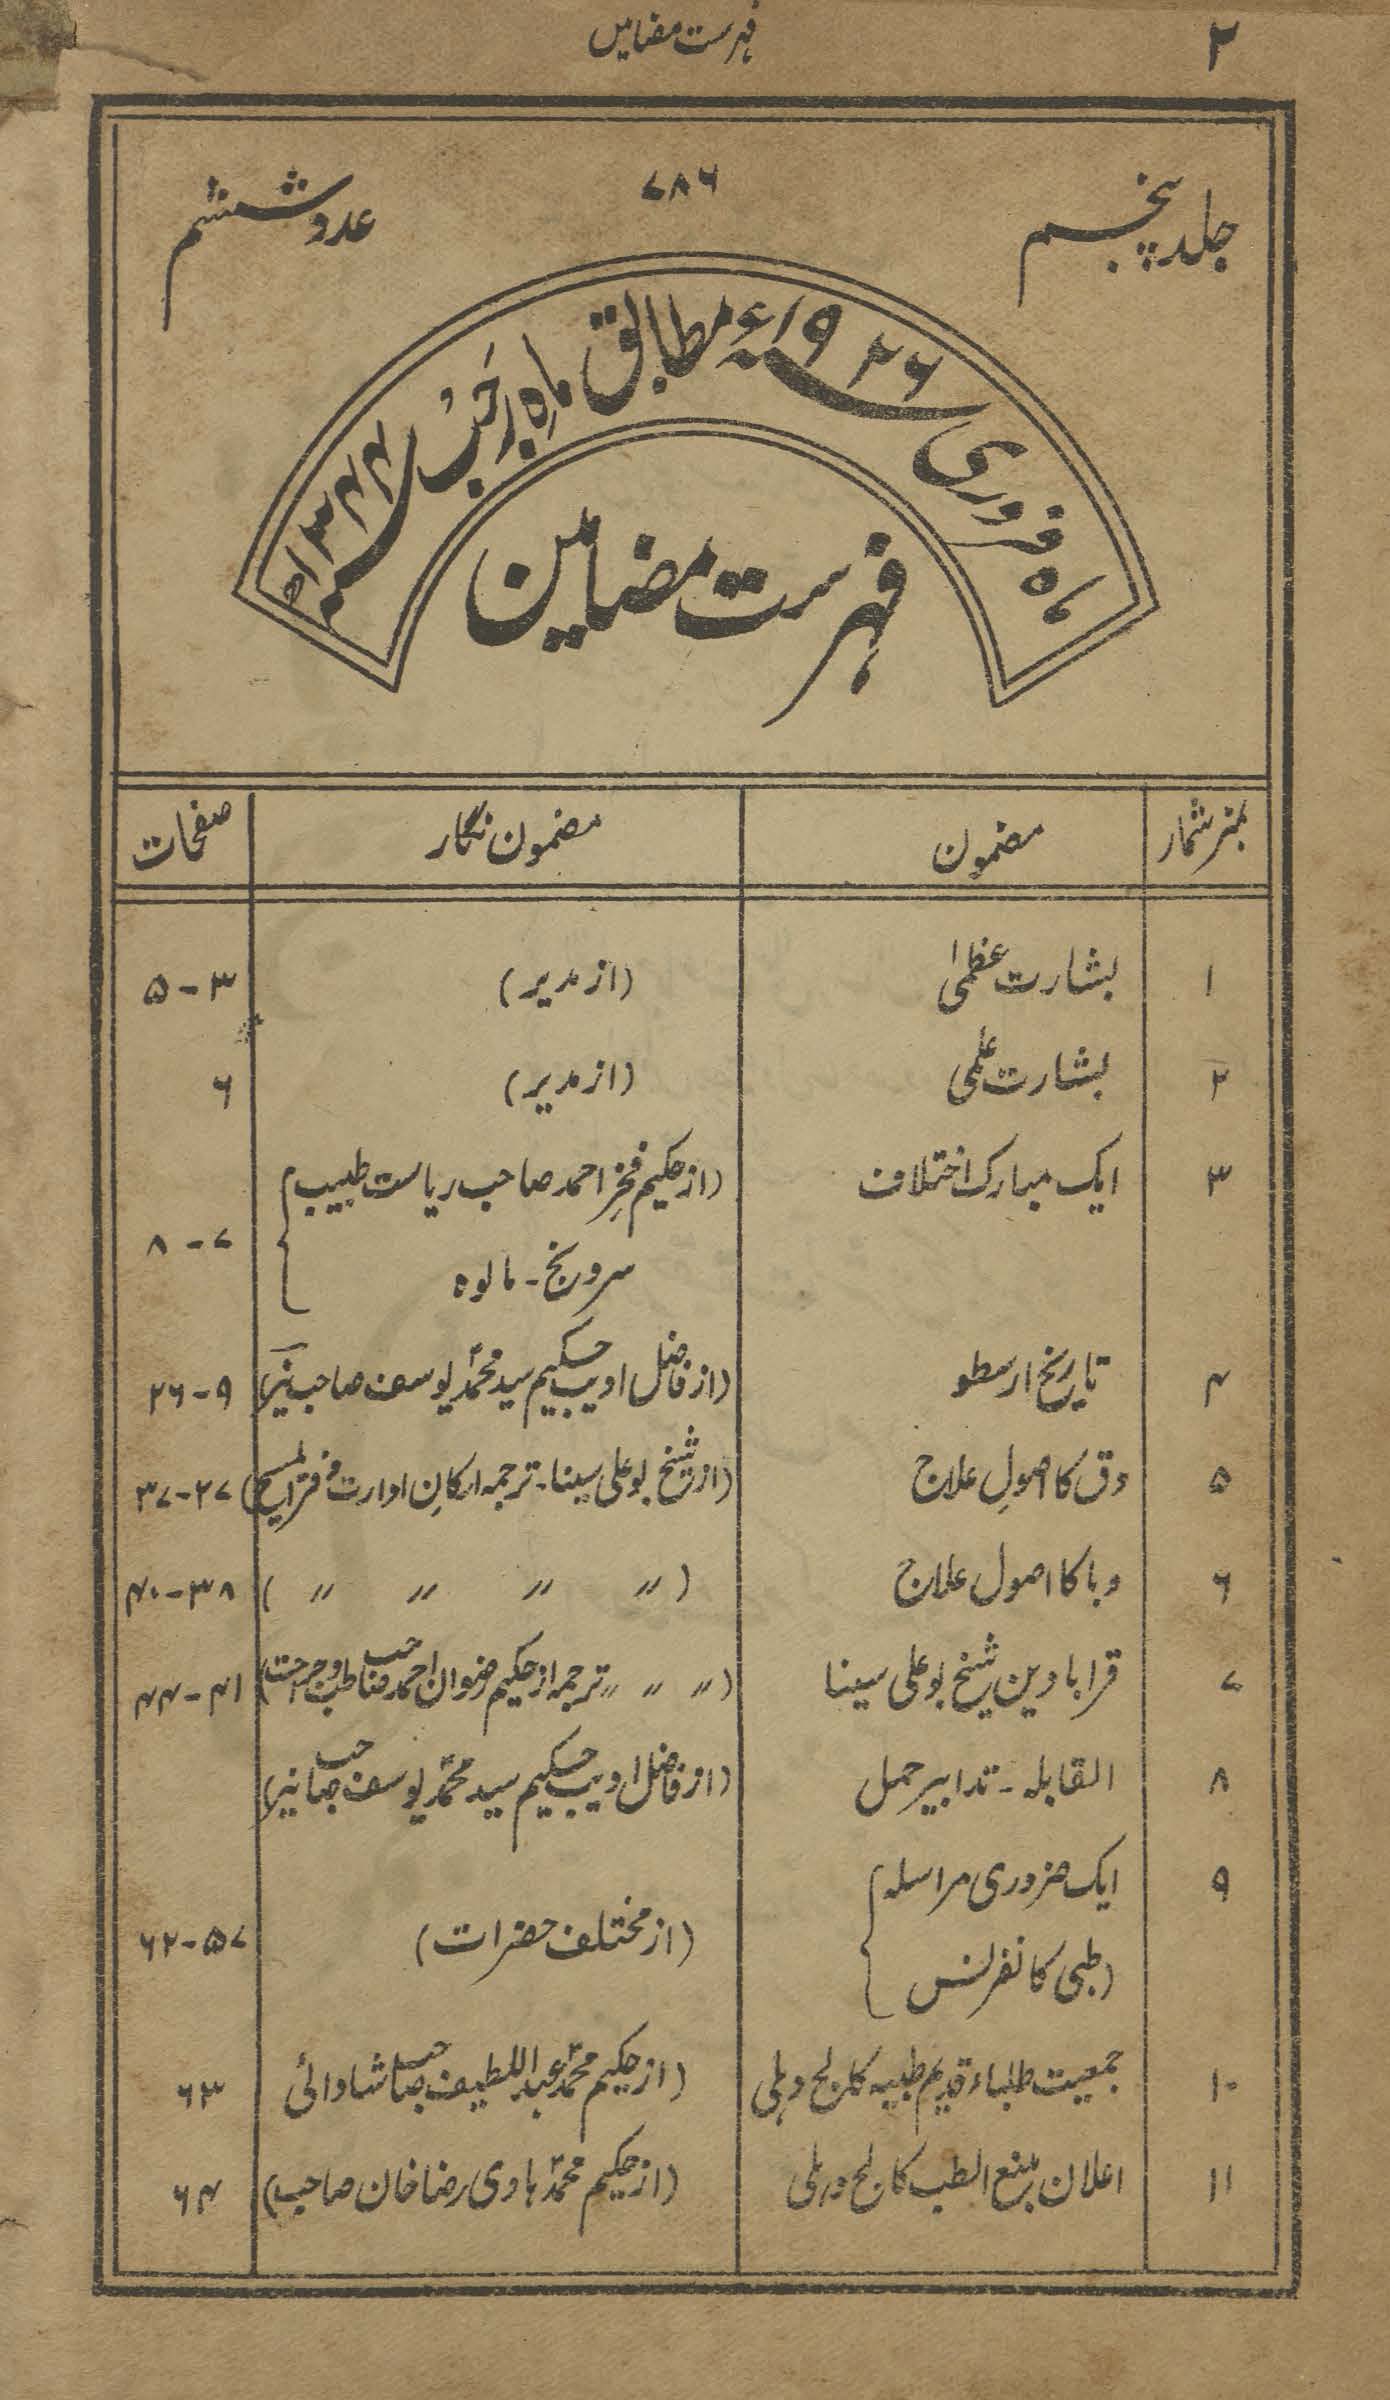 ۲
فہرست مضامین
جلد پنجم
۷۸۶
عدد ششم
ماہ فروری سنہ ۱۹۲۶ء مطابق ماہِ رَجَبْ سنہ ۱۳۴۴ھ
فہرست مضامین
نمبر شمار مضمون مضمون نگار صفحات
۱ بشارت عظمیٰ (از مدیر) ۳-۵
۲ بشارت علمی (از مدیر) ۶
۳ ایک مبارک اختلاف (از حکیم فخر احمد صاحب ریاست طبیب
سرونج - مالوہ ۷-۸
۴ تاریخ ارسطو (از فاضل ادیب حکیم سید محمدؐ یوسف صاحب نیّر) ۹-۲۶
۵ دق کا اصولِ علاج (از شیخ بو علی سینا - ترجمہ ارکانِ ادارت دفتر المسیح) ۲۷-۳۷
۶ وبا کا اصول علاج (〃 〃 〃 〃) ۳۸-۴۰
۷ قرابادین شیخ بو علی سینا (〃 〃 〃 ترجمہ از حکیم رضوان احمد صاحب طب و جراحت) ۴۱-۴۴
۸ القابلہ - تدابیر حمل (از فاضل ادیب حکیم سید محمدؐ یوسف صاحب نیر)
۹ ایک ضروری مراسلہ
(طبی کانفرنس (از مختلف حضرات) ۵۷-۶۲
۱۰ جمعیت طلباء قدیم طبیہ کالج دہلی (از حکیم محمدؐ عبد اللطیف صاحب شادانی ۶۳
۱۱ اعلان منبع الطب کالج دہلی (از حکیم محمدؐ ہادی رضا خان صاحب) ۶۴